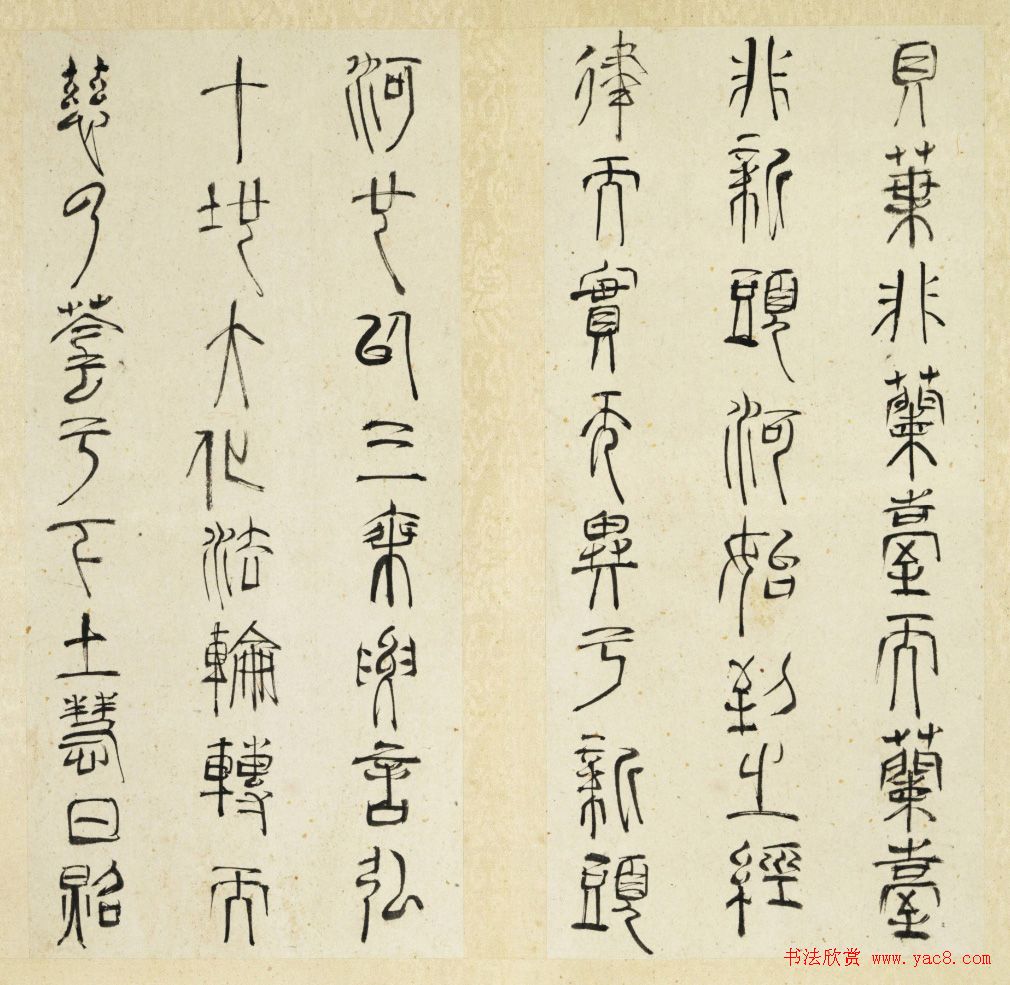 貝葉非蘭臺而蘭臺
非新頭河始到之經
律而實不異乎新頭
河也以三乘言弘
十地大化法輪轉而
慈乃蔭乎下土慧日照
书法欣赏 www.yac8.com